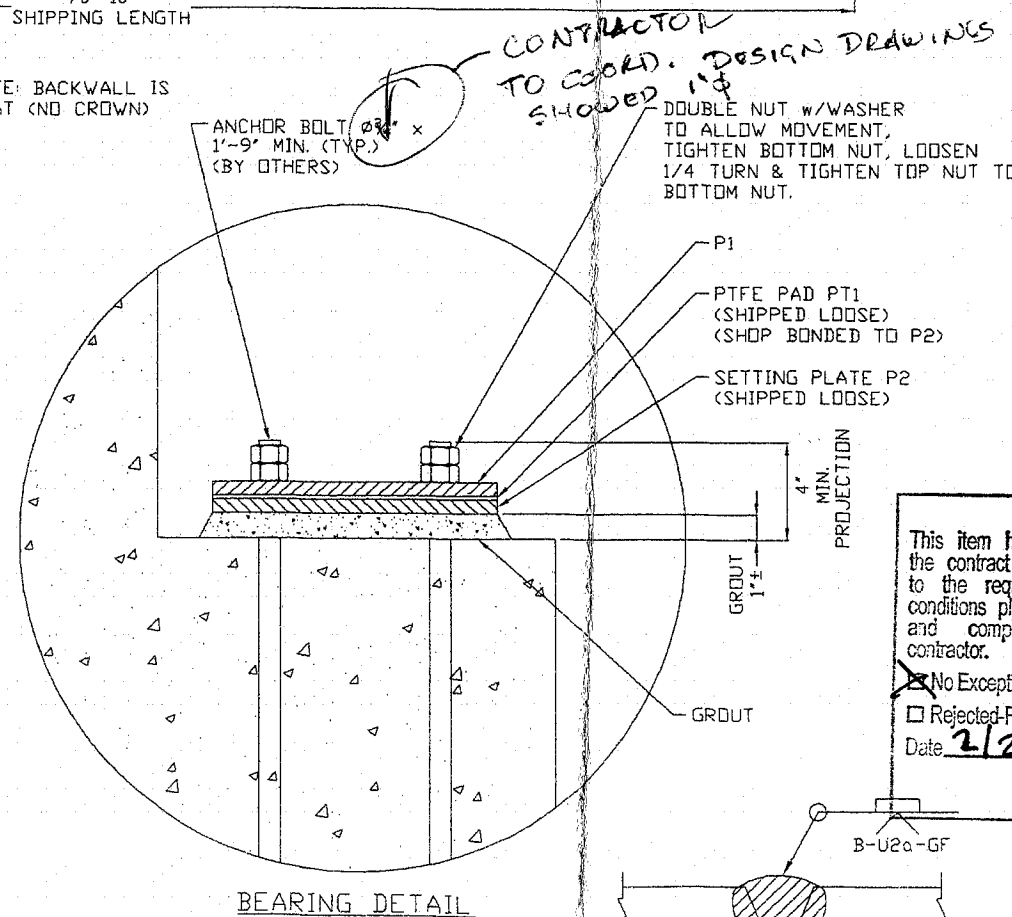 SHIPPING LENGTH
CONTRACTOR
TO COORD. DESIGN DRAWINGS
SHOWED 1"Φ
BACKWALL IS
(NO CROWN)
ANCHOR BOLT Ø¾" x
1'~9" MIN. (TYP.)
(BY OTHERS)
DOUBLE NUT w/WASHER
TO ALLOW MOVEMENT,
TIGHTEN BOTTOM NUT, LOOSEN
1/4 TURN & TIGHTEN TOP NUT TO
BOTTOM NUT.
P1
PTFE PAD PT1
(SHIPPED LOOSE)
(SHOP BONDED TO P2)
SETTING PLATE P2
(SHIPPED LOOSE)
4"
MIN.
PROJECTION
GROUT
1"±
GROUT
This item
the contract
to the
conditions
and
contractor.
No
Date 2/2
B-U2a-GF
BEARING DETAIL